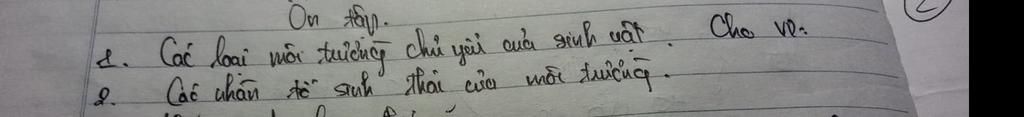 Ôn tập.
1. Các loại môi trường chủ yếu của sinh vật. Cho VD.
2. Các nhân tố sinh thái của môi trường.